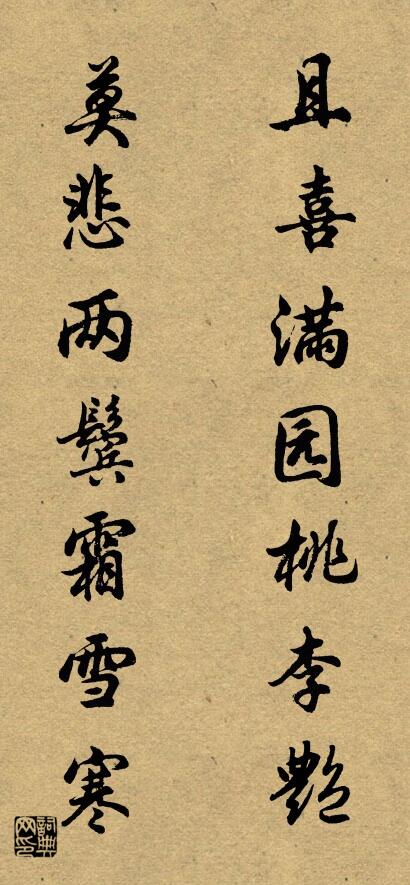 且喜满园桃李艳
莫悲两鬓霜雪寒
詞典网印